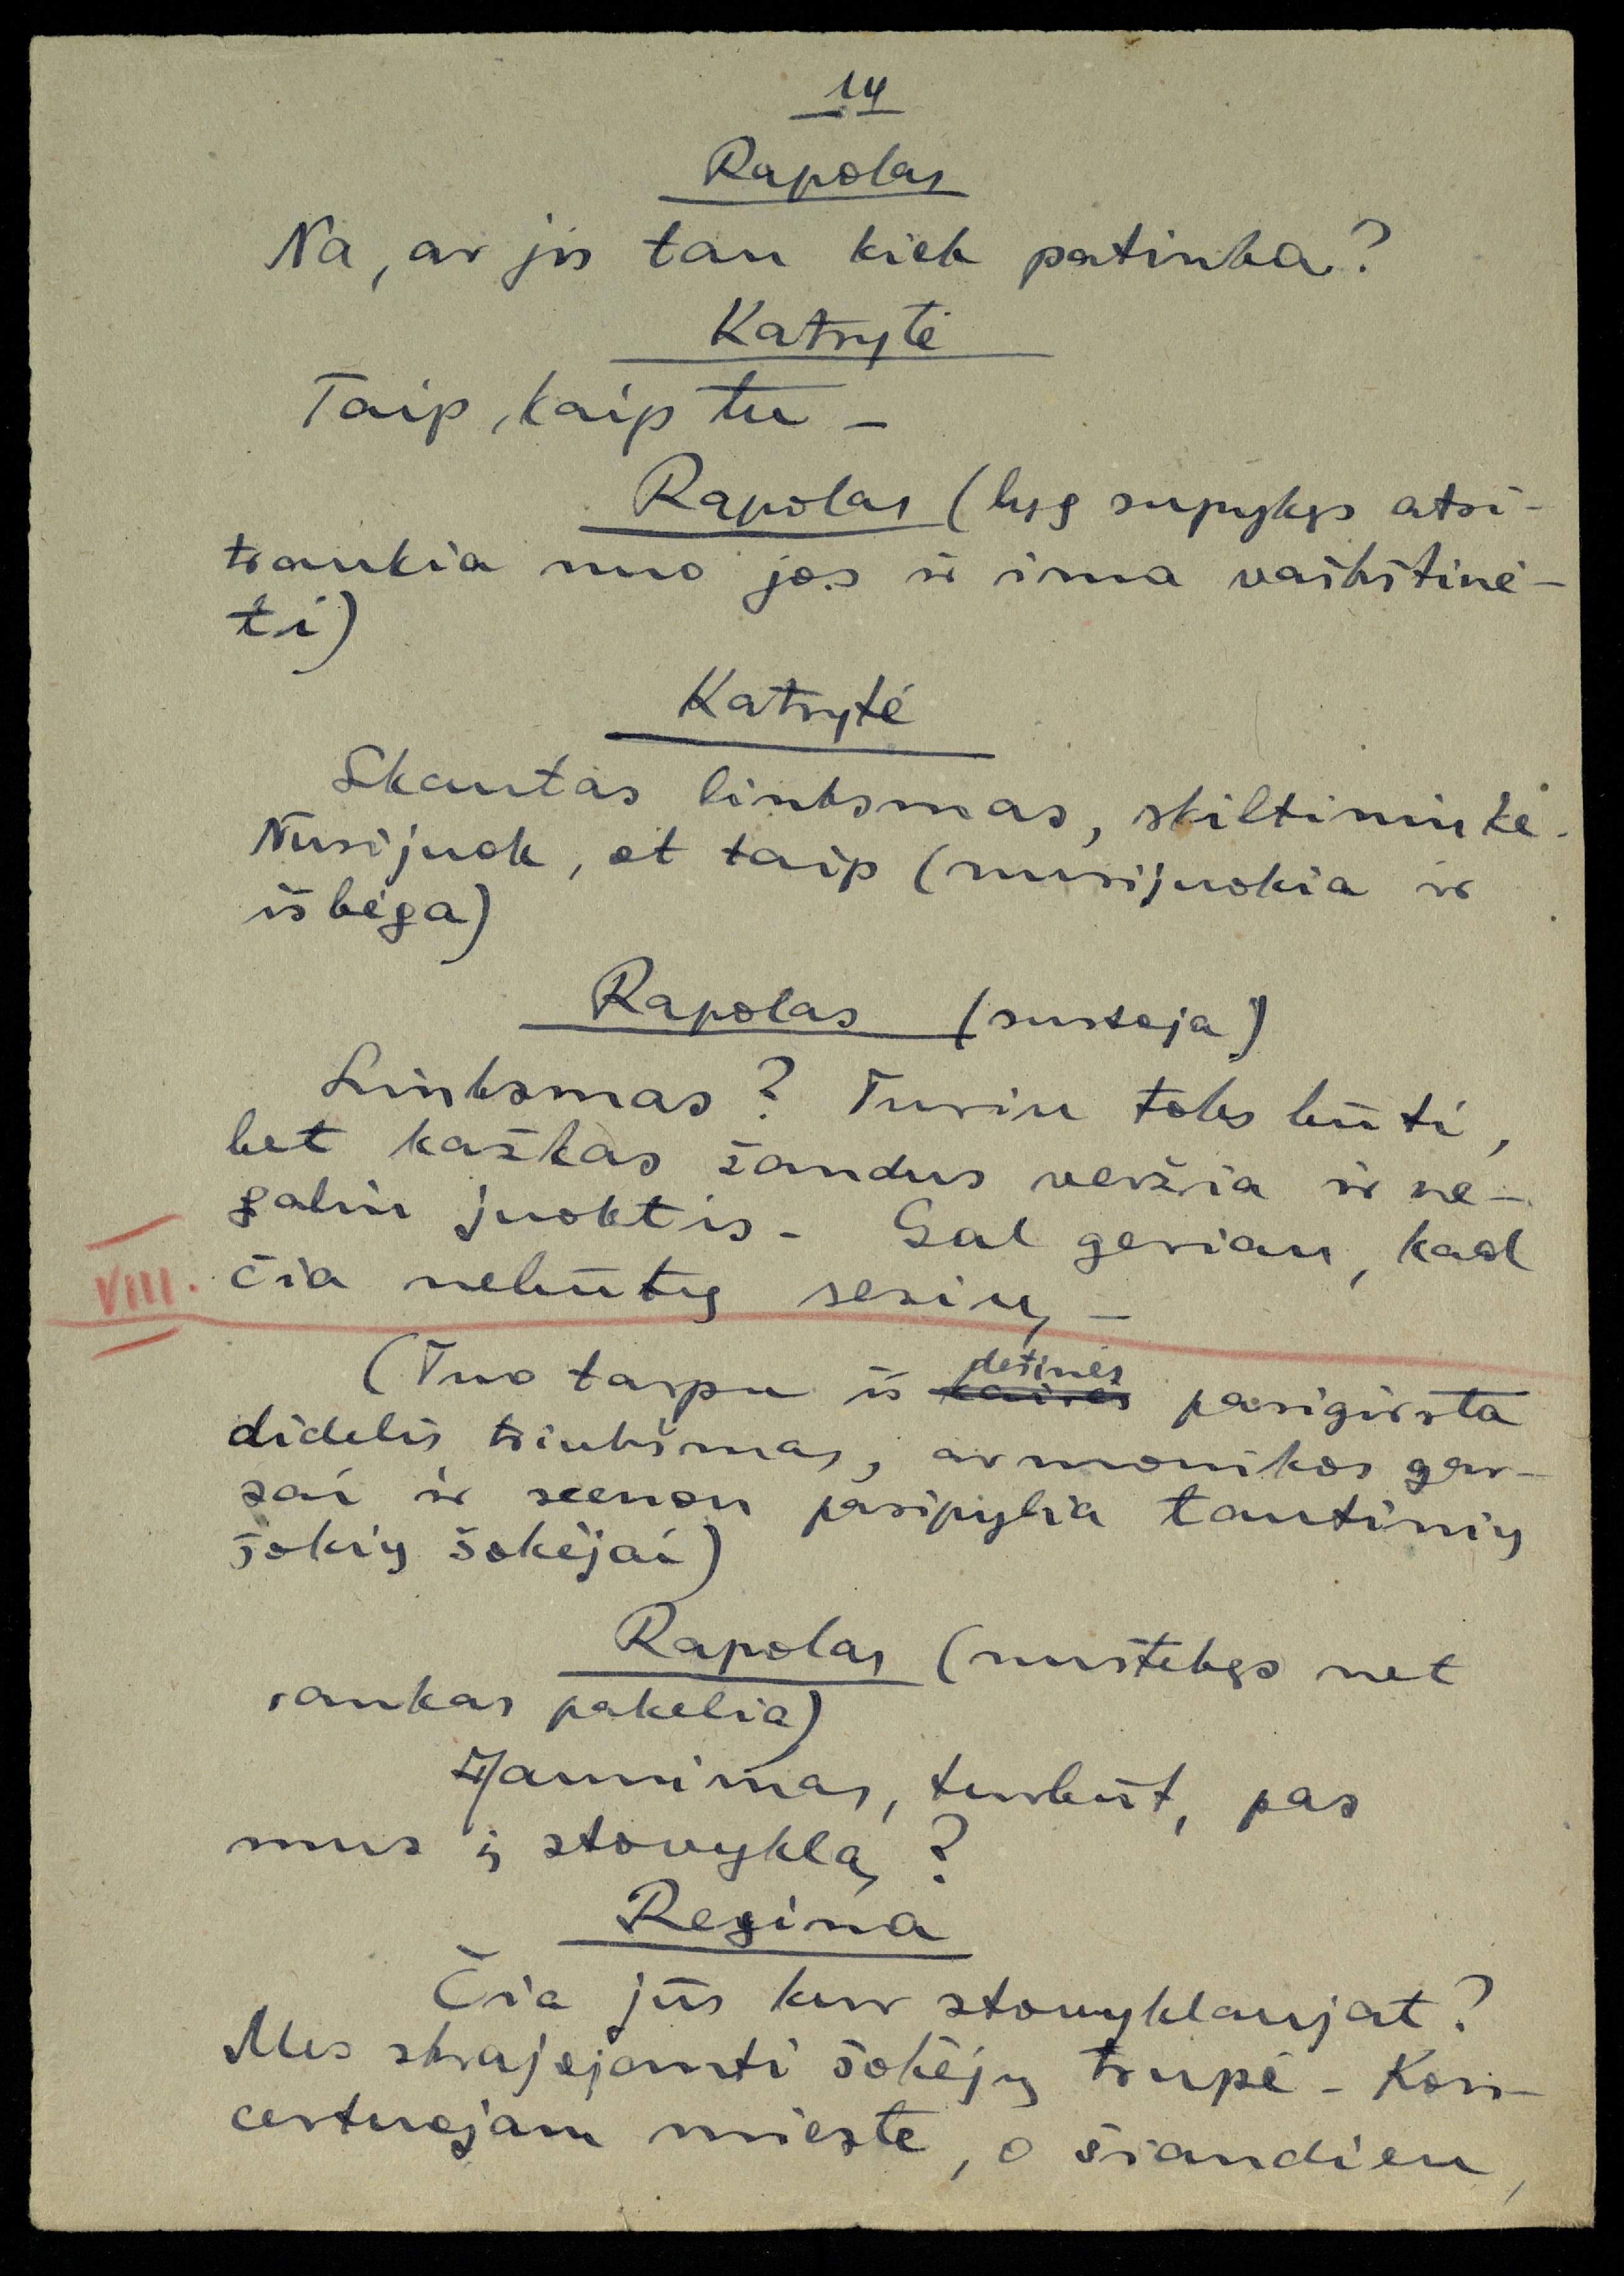 14
Rapolas
Na, ar jis tau kiek patinka?
Katrytė
Taip, kaip tu –
Rapolas (lyg supykęs atsi-
traukia nuo jos ir ima vaikštinė-
ti)
Katrytė
Skautas linksmas, skiltininke.
Nusijuok, ot taip (nusijuokia ir
išbėga)
Rapolas (sustoja)
Linksmas? Turiu toks būti,
bet kažkas žandus veržia ir ne-
galiu juoktis – Gal geriau, kad
VIII. čia nebūtų sesių –
dešinės
(Tuo tarpu iš kairės pasigirsta
didelis triukšmas, armonikos gar-
sai ir scenon pasipylia tautinių
šokių šokėjai)
Rapolas (nustebęs net
rankas pakelia)
Jaunimas, turbūt, pas
mus į stovyklą?
Regina
Čia jūs kur stovyklaujat?
Mes skrajojanti šokėjų trupė – Kon-
certuojam mieste, o šiandien,